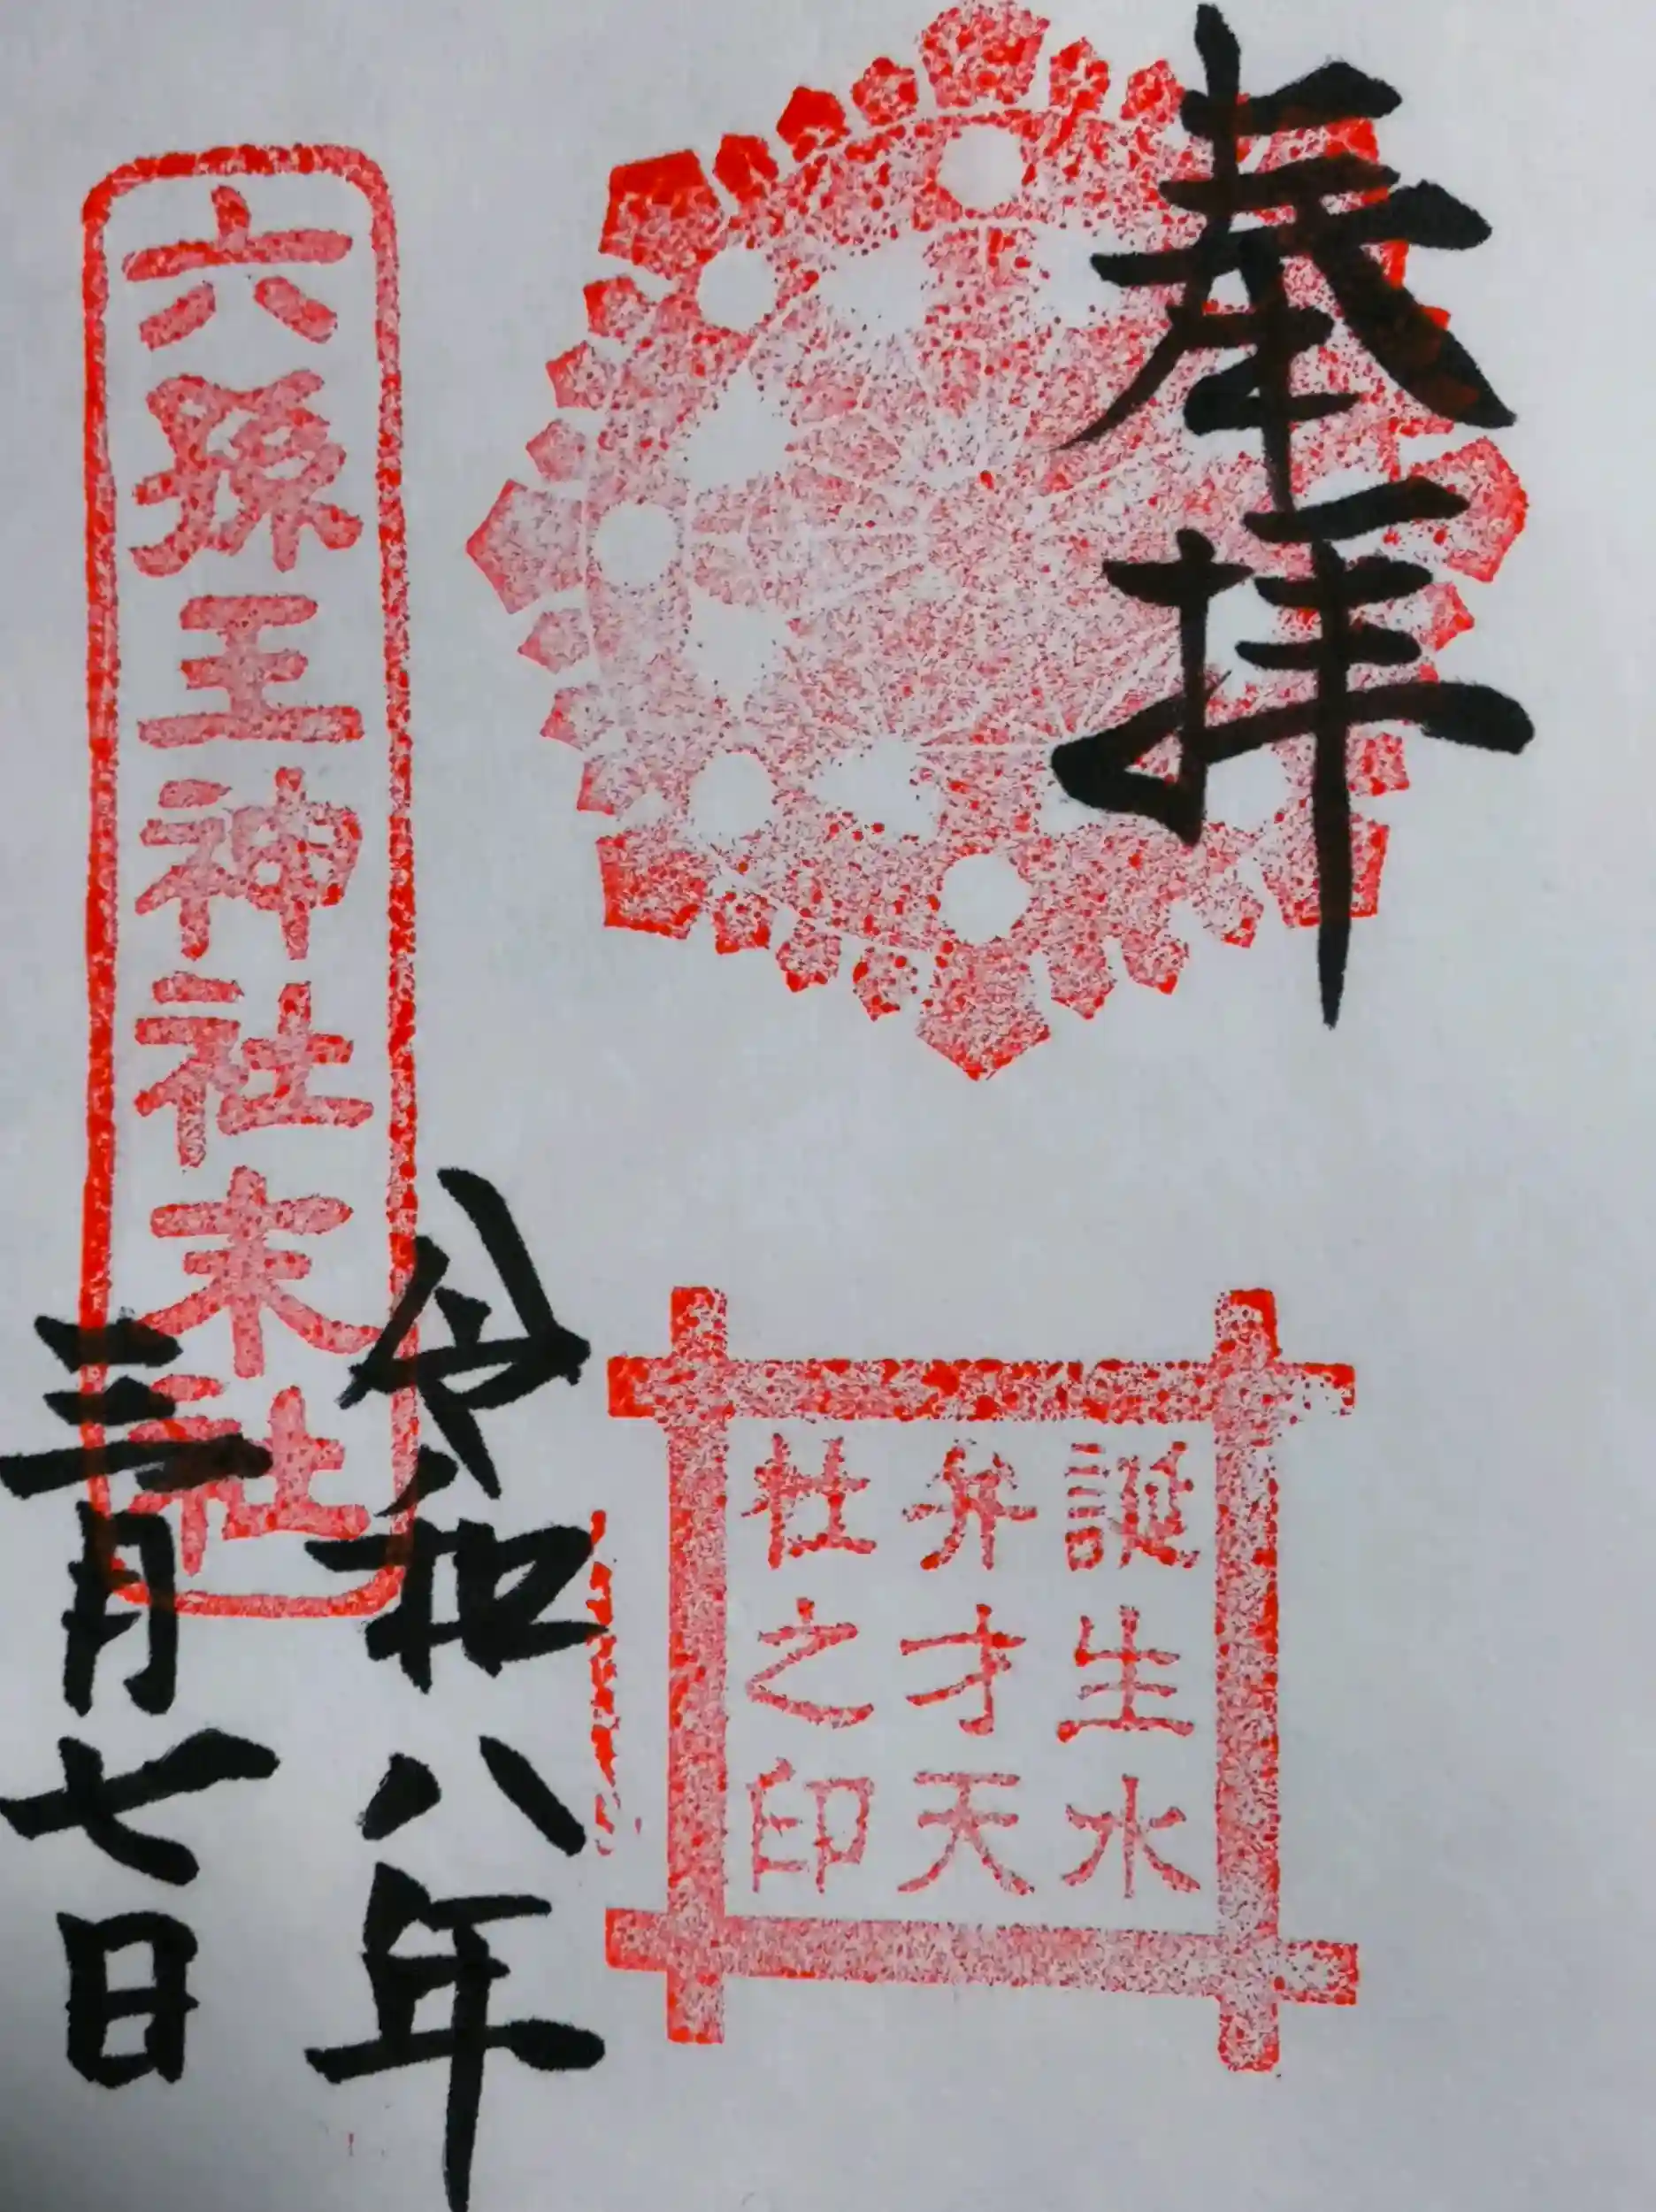 奉拝
誕生水
弁才天
社之印
令和八年
三月七日
六孫王神社末社